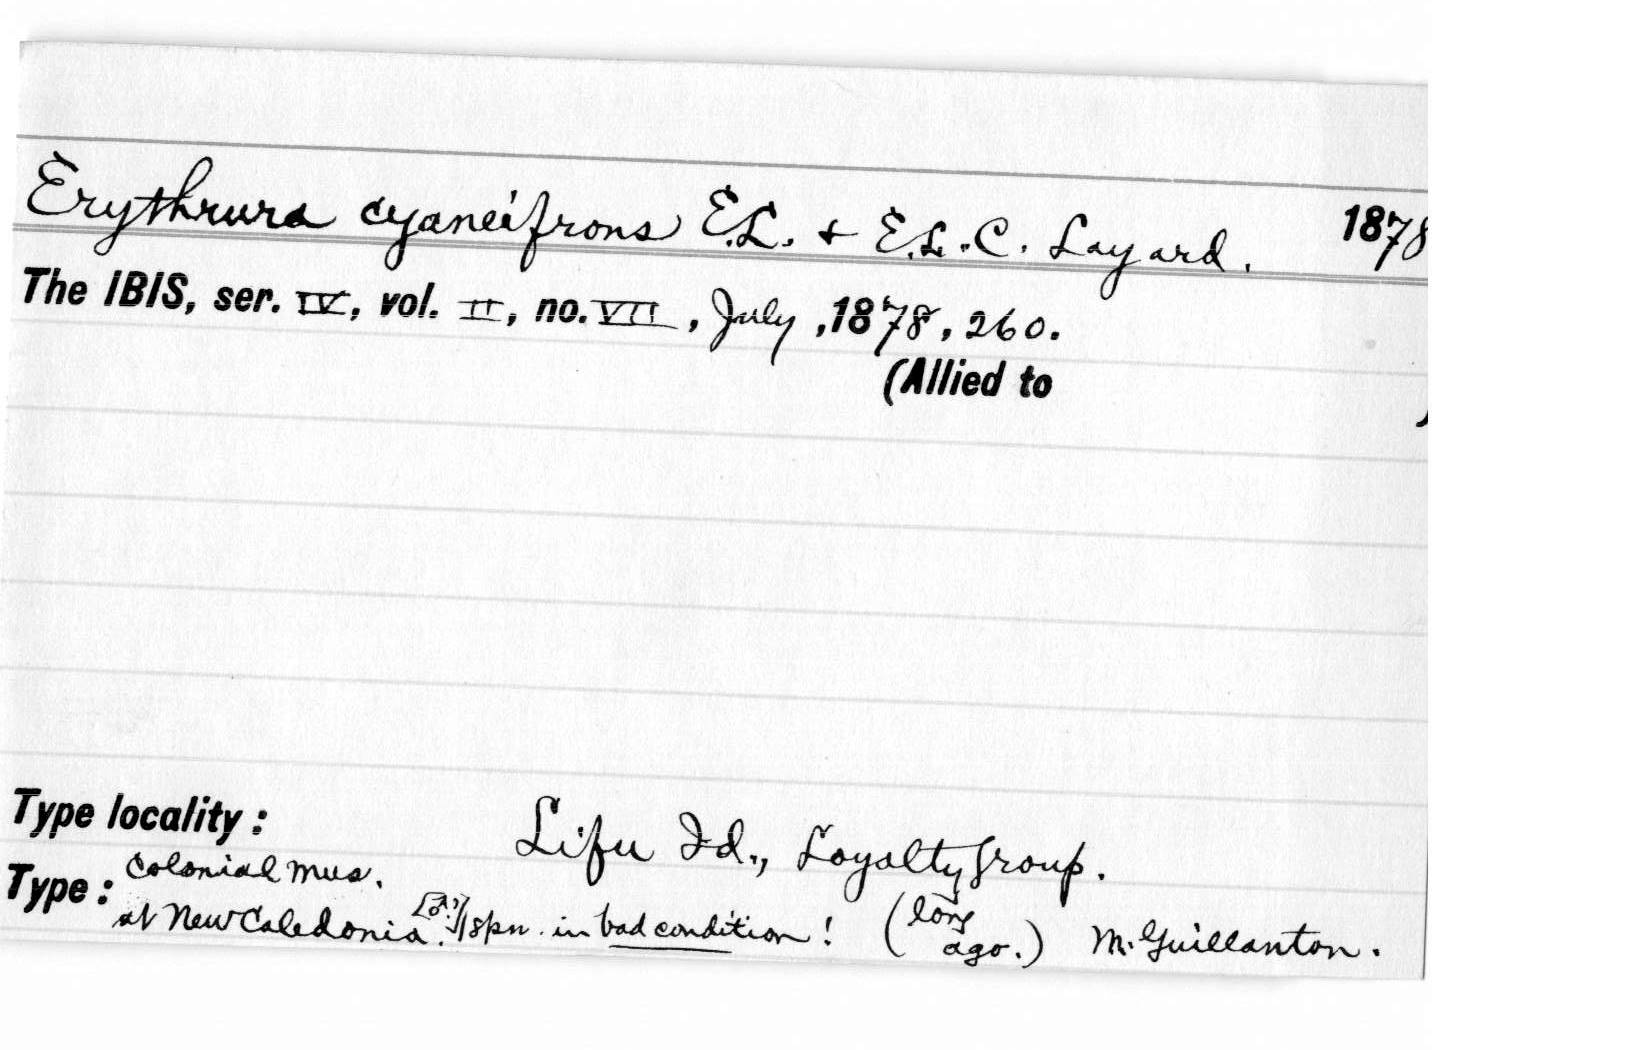 Erythrura cyaneifrons E.L. + E.L.C. Layard. 1878
The IBIS, ser. IV, vol. II, no. VII, July, 1878, 260.
(Allied to )
Type locality: Lifu Id., Loyalty Group.
Type: Colonial Mus.
at New Caledonia. [♂?] 1 spn. in bad condition! (long ago.) M. Guillanton.